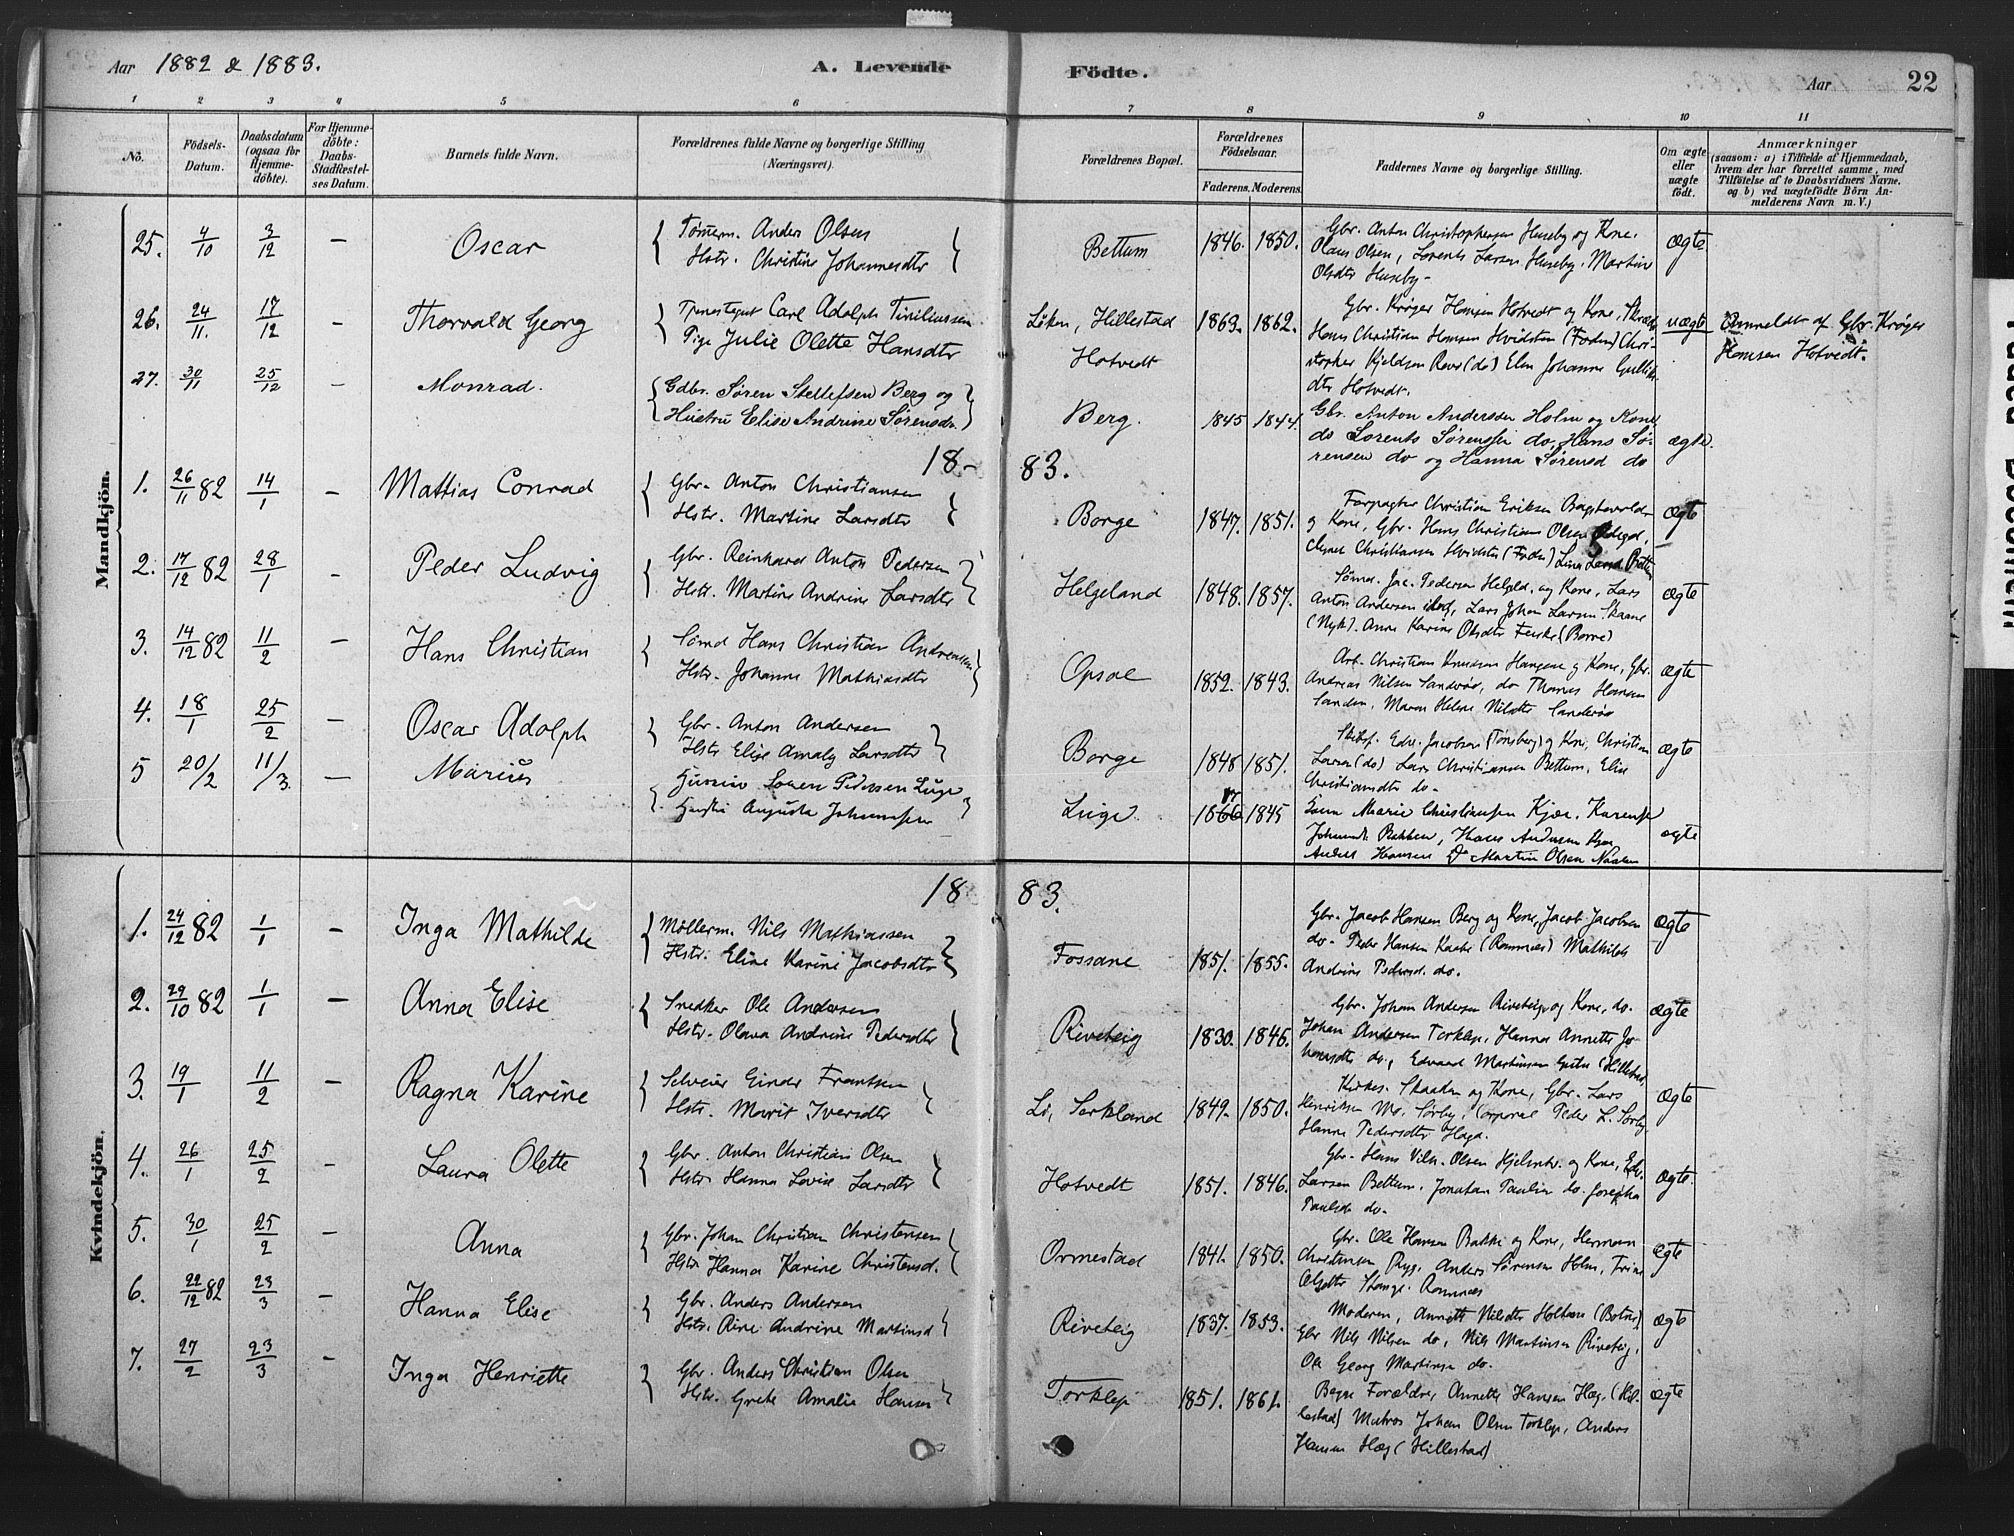 Aar 1882 & 1883.
A. Levende
Födte.
Aar
22
1 2 3 4 5 6 7 8 9 10 11
No.
Födsels-
Datum.
Daabsdatum
(ogsaa for
Hjemme-
döbte).
For Hjemme-
döbte:
Daabs-
Stadfæstel-
ses Datum.
Barnets fulde Navn.
Forældrenes fulde Navne og borgerlige Stilling
(Næringsvei).
Forældrenes Bopæl.
Forældrenes
Födselsaar.
Faderens. Moderens.
Faddernes Navne og borgerlige Stilling.
Om ægte
eller
uægte
födt.
Anmærkninger
(saasom: a) i Tilfælde af Hjemmedaab,
hvem der har forrettet samme, med
Tilföielse af to Daabsvidners Navne,
og b) ved uægtefödte Börn An-
melderens Navn m. V.)
Mandkjön.
25. 4/10 3/12 – Oscar
Tømerm. Anders Olsen
Hstr. Christine Johannesdtr
Bettum 1846. 1850.
Gbr. Anton Christophersen Huseby og Kone.
Olaus Olsen, Lorents Larsen Huseby. Martine
Olsdtr Huseby –
ægte
26. 24/11. 17/12 – Thorvald Georg
Tjenestegut Carl Adolph
Pige Julie Olette Hansdtr
Löken, Hillestad
Hotvedt
1863. 1862.
Gbr. Krøger Hansen Hotvedt og Kone,
Hans Christian Hansen Hvidsten (Foden) Chri-
Kjeldsen Rove (do) Elen Johanne
dtr Hotvedt.
uægte
Anmeldt af Gbr. Krøger
Hansen Hotvedt.
27. 30/11 25/12 – Monrad.
Gdbr. Sören Stellefsen Berg og
Hustru Elise Andrine Sörensdr.
Berg. 1845 1844.
Gbr. Anton Andersen Holm og Kone
do Lorents Sørensen do, Hans Sø-
rensen do og Hanna Sørensd do
ægte.
18– 83.
1. 26/11 82 14/1 – Mattias Conrad
Gbr. Anton Christiansen
Hstr. Martine Larsdtr
Borge 1847. 1851.
Forpagter Christian Eriksen
og Kone, Gbr. Hans Christian Olsen
Christiansen Hvidsten (Foden) Lina Larsd.
ægte
2. 17/12 82 28/1 – Peder Ludvig
Gbr. Reinhard Anton Pedersen
Hstr. Martine Andrine Larsdtr
Helgeland 1848. 1857.
Sømd. Jac. Pedersen Helgld. og Kone, Lars
Anton Andersen ibid, Lars Johan Larsen Skaane
(Nyk). Anne Karine Olsdtr (Borre)
ægte
3. 14/12 82 11/2 – Hans Christian
Sømd Hans Christian Andreassen
Hstr. Johanne Mathiasdtr
Opsal 1852. 1843.
Arb. Christian Knudsen Hangene og Kone, Gbr.
Andreas Nilsen Sanderö, do Thomas Hansen
Sanden, Maren Helene Nilsdtr Sanderö
ægte
4. 18/1 25/2 – Oscar Adolph
Gbr. Anton Andersen
Hstr Elise Amaly Larsdtr
Borge 1848 1851.
Skibsf. Edv. Jacobsen (Tønsberg) og Kone, Christian
Larsen (do) Lars Christiansen Bettum, Elise
Christiansdtr do.
ægte
5 20/2 11/3. – Marius
Pedersen Luge
Augusta Johannesen
Luge. 1845
Marie Christiansen Kjær,
Bakken, Hans Andersen
Hansen Do Martin Olsen
ægte
Kvindekjön.
18 83.
1. 24/12 82 1/1 – Inga Mathilde
Møllerm. Nils Mathiassen
Hstr. Eline Karine Jacobsdtr
Fossane 1851. 1855.
Gbr. Jacob Hansen Berg og Kone, Jacob Jacobsen
do. Peder Hansen (Ramnæs) Mathilde
Andrine Pedersd. do.
ægte
2. 29/10 82 1/1 – Anna Elise
Snedker Ole Andersen
Hstr. Olava Andrine Pedersdtr
Riveteig 1830. 1846.
Gbr. Johan Andersen Riveteig og Kone, do.
Johan Andersen Torklep, Hanna Annette Jo-
hansdtr do, Edvard Martinsen
ægte
3. 19/1 11/2 – Ragna Karine
Selveier Einder Frantsen
Hstr. Marit Iversdtr
Li, Serkland 1849. 1850.
Kirkes. Skaaden og Kone, Gbr. Lars
Henriksen Sørby, Corporal Peder L. Sørby,
Hanna Pedersdtr Haga.
ægte
4. 26/1 25/2 – Laura Olette
Gbr. Anton Christian Olsen
Hstr. Hanna Lovise Larsdtr
Hotvedt 1851. 1846.
Gbr. Hans Vilh. Olsen og Kone, Edv.
Larsen Bettum. Jonathan Paulsen do. Josepha
Paulsdtr do.
ægte.
5. 30/1 25/2 – Anna
Gbr. Johan Christian Christensen
Hstr. Hanna Karine Christensd.
Ormestad 1841. 1850.
Gbr. Ole Hansen Bakke og Kone, Herman
Christensen Ryg, Anders Sørensen Holm, Trine
Olsdtr Stange. Ramnæs
ægte
6. 22/12 82 23/3 – Hanna Elise
Gbr. Anders Andersen
Hstr. Andrine Martinsd
Riveteig 1837. 1853.
Moderen, Annette Nilsdtr Holtane (Botne)
Gbr Nils Nilsen do, Nils Martinsen Riveteig,
Ole Georg Martinsen do.
ægte
7. 27/2 23/3 – Inga Henriette
Gbr. Anders Christian Olsen
Hstr. Grete Amalie Hansen
Torklep 1851. 1861.
Begge Forældre, Annette Hansen Hæg (Hil-
lestad) Matros Johan Olsen Torklep, Anders
Hansen Hæg (Hillestad)
ægte